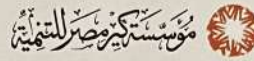 مؤسسة كير مصر للتنمية